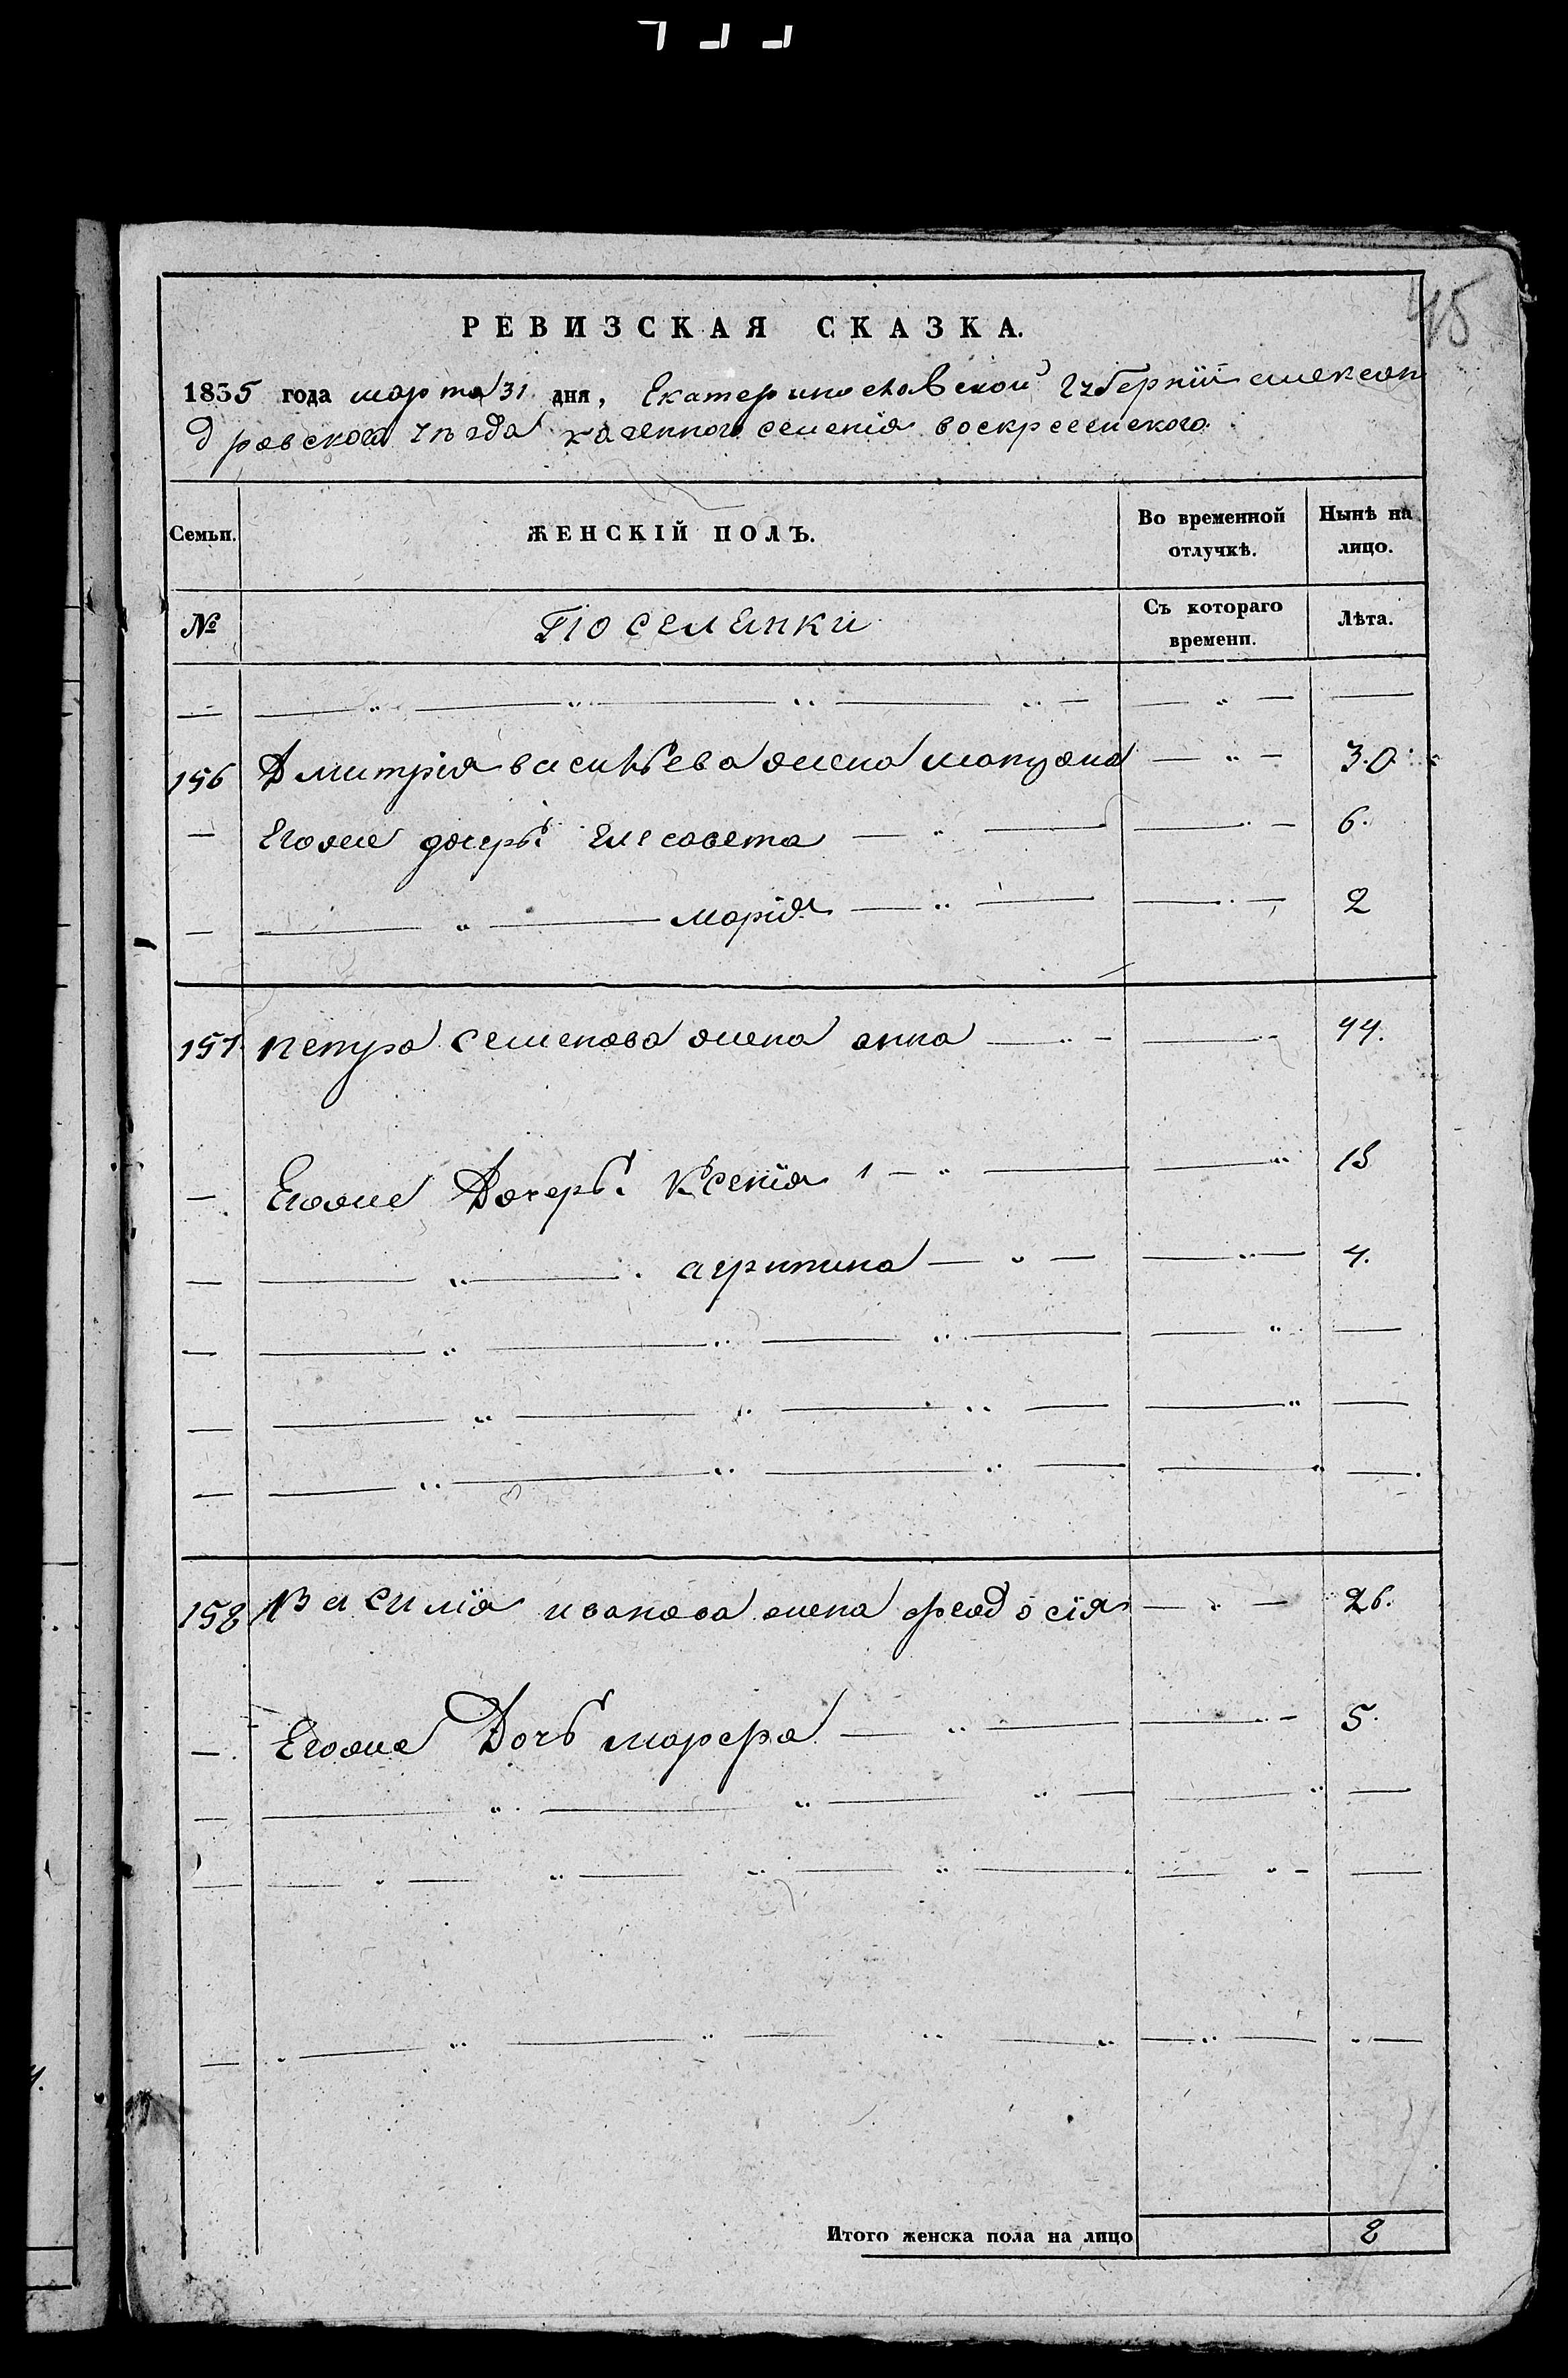 45
РЕВИЗСКАЯ СКАЗКА.
1835 года марта 31 дня, Екатеринославской губернии алексан
дровского уѣзда казенного селения воскресенского
Семьи.
ЖЕНСКІЙ ПОЛЪ.
Во временной отлучкѣ.
Нынѣ на лицо.
№
Поселянки
Съ котораго времени.
Лѣта.
156 Дмитрія васильева жена 30
Егоже дочерь: елесавета 6.
марія 2
157 петра семенова жена анна 44.
Егоже Дочерь: Ксенія 1
агрипина 4.
158 Василія иванова жена феодосія 26.
Егоже Дочь марфра 5.
Итого женска пола на лицо 8